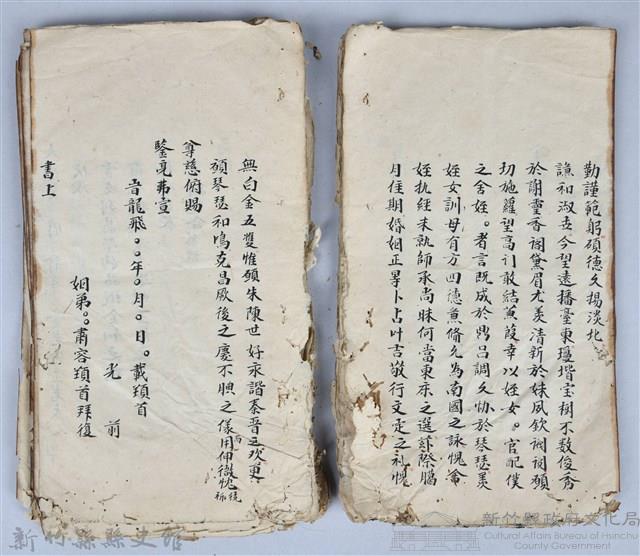 勤謹範躬碩德久揚淡北
謙和淑世今望遠播臺東瓊堦宝樹不数俊秀
於謝灵香閣黛眉尤羡清新於妹風欽詞詞願
切施蘿望高引敢結蒹葭幸以姪女。官配僕
之舍姪。者言既成於鼎呂調久協於琴瑟羡
姪女訓母有方四德兼脩允為南國之詠愧舍
姪执經未就師承尚昧何當東床之選茲際臈
月佳期婚姻正畢卜占叶吉敬行文定之礼愧
無白金五雙惟願朱陳世好永諧秦晋之欢更
願琴瑟和鳴克昌厥後之慶不腆之儀用伸微忱
尊慈俯賜
鑒亮弗宣
旹龍飛。。年。月。日。載頓首
光前
姻弟。。肅容頓首拜復
書上
新竹縣縣史館
新竹縣政府文化局
Cultural Affairs Bureau of Hsinchu
County Government